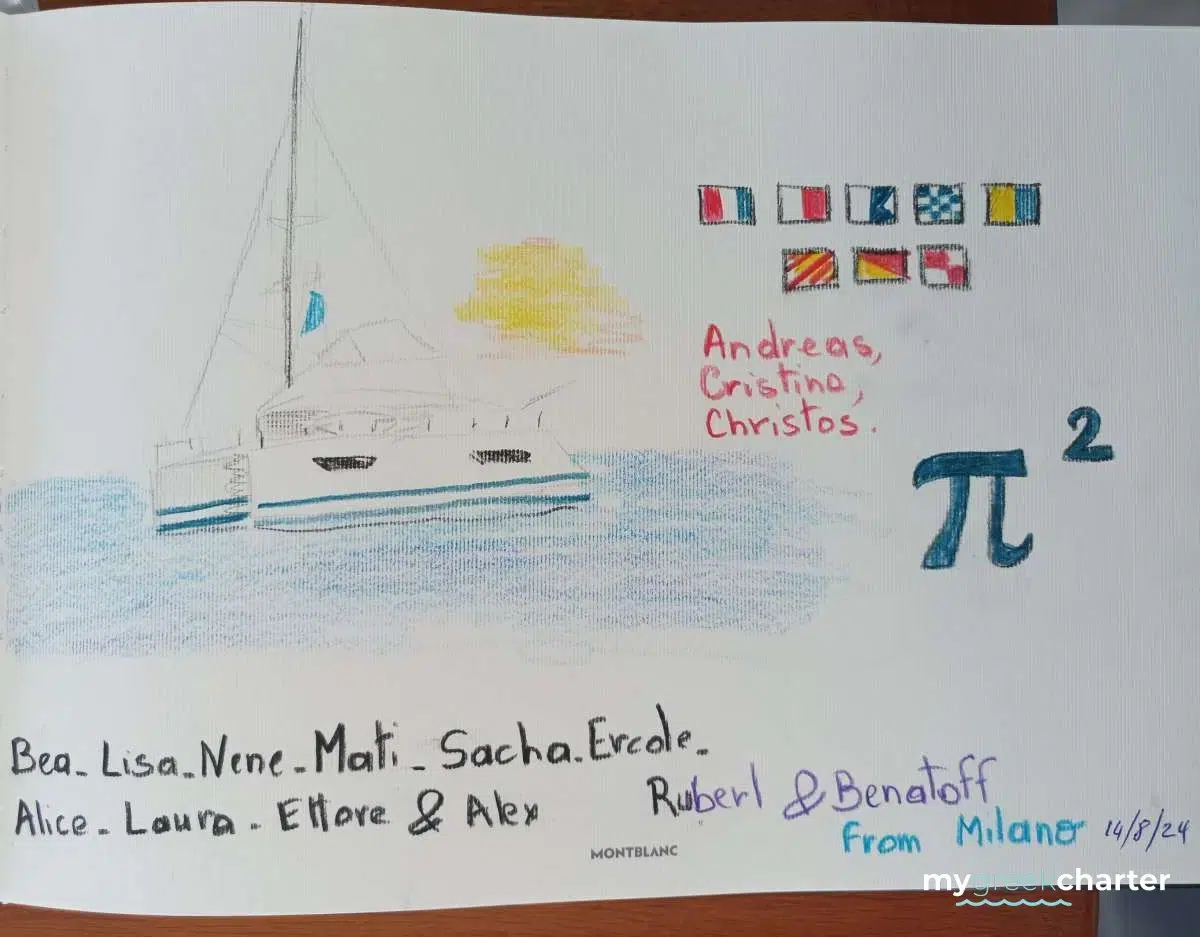 Andreas,
Cristina,
Christos.
π²
Bea - Lisa - Nene - Mati - Sacha - Ercole -
Alice - Laura - Ettore & Alex
Ruberl & Benatoff
From Milano 14/8/24
MONTBLANC
mygreekcharter